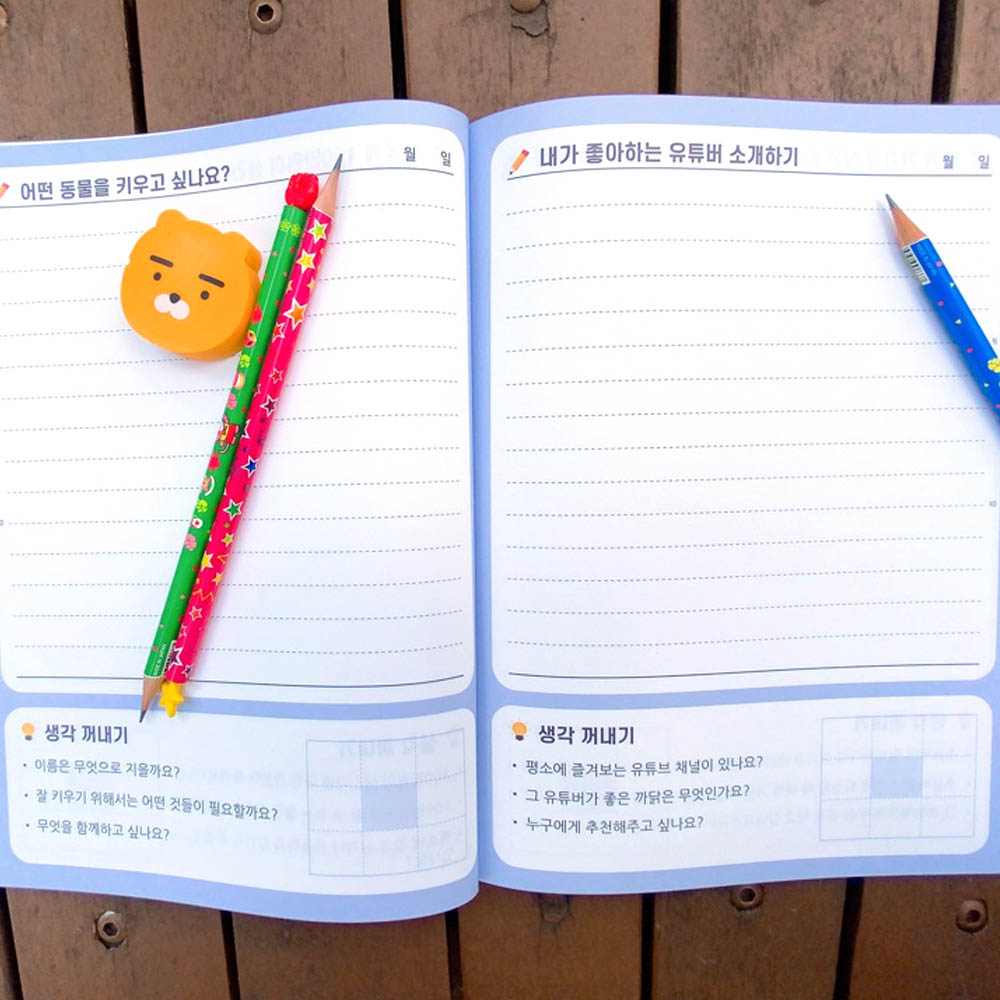 어떤 동물을 키우고 싶나요?
월 일
생각 꺼내기
• 이름은 무엇으로 지을까요?
• 잘 키우기 위해서는 어떤 것들이 필요할까요?
• 무엇을 함께하고 싶나요?
내가 좋아하는 유튜버 소개하기
월 일
생각 꺼내기
• 평소에 즐겨보는 유튜브 채널이 있나요?
• 그 유튜버가 좋은 까닭은 무엇인가요?
• 누구에게 추천해주고 싶나요?